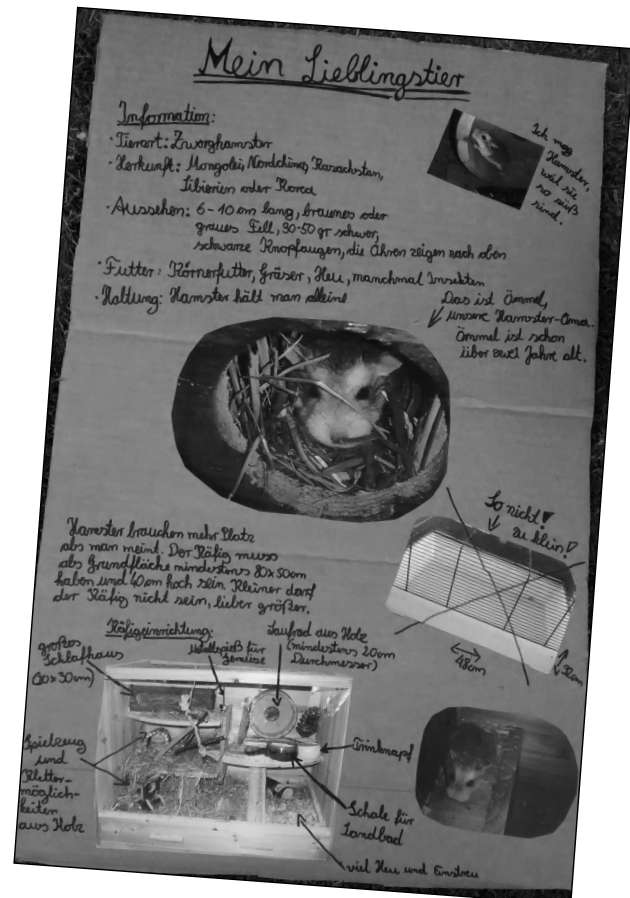 Mein Lieblingstier
Information:
· Tierart: Zwerghamster
· Herkunft: Mongolei, Nordchina, Kasachstan,
Sibirien oder Korea
· Aussehen: 6-10 cm lang, braunes oder
graues Fell, 30-50 gr schwer,
schwarze Knopfaugen, die Ohren zeigen nach oben
· Futter: Körnerfutter, Gräser, Heu, manchmal Insekten
· Haltung: Hamster hält man alleine
Ich mag
Hamster,
weil sie
so süß
sind.
Das ist Ömmel,
unsere Hamster-Oma.
Ömmel ist schon
über zwei Jahre alt.
Hamster brauchen mehr Platz
als man meint. Der Käfig muss
als Grundfläche mindestens 80x50cm
haben und 40cm hoch sein Kleiner darf
der Käfig nicht sein, lieber größer.
So nicht!
zu klein!
48cm
32cm
Käfigeinrichtung:
großes
Schlafhaus
(30x30cm)
Metallspieß für
Gemüse
Laufrad aus Holz
(mindestens 20cm
Durchmesser)
Spielzeug
und
Kletter-
möglich-
keiten
aus Holz
Trinknapf
Schale für
Sandbad
viel Heu und Einstreu